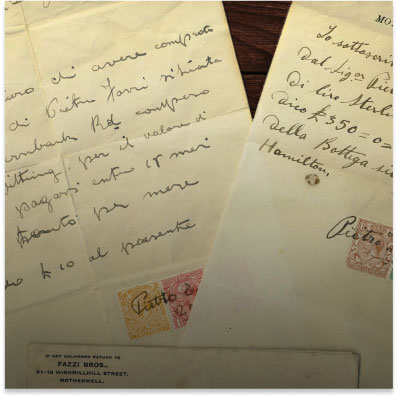 di avere comprato
di Pietro
Rd compero
per il valore di
pagarsi entro 18 mesi
per mese
£10 al presente
Pietro
MO
Io sottoscri
Dal Sigor Pie
di lire Sterli
dico £350=0=
Della Bottega si
Hamilton,
Pietro
IF NOT DELIVERED RETURN TO
FAZZI BROS.,
WINDMILLHILL STREET,
MOTHERWELL.